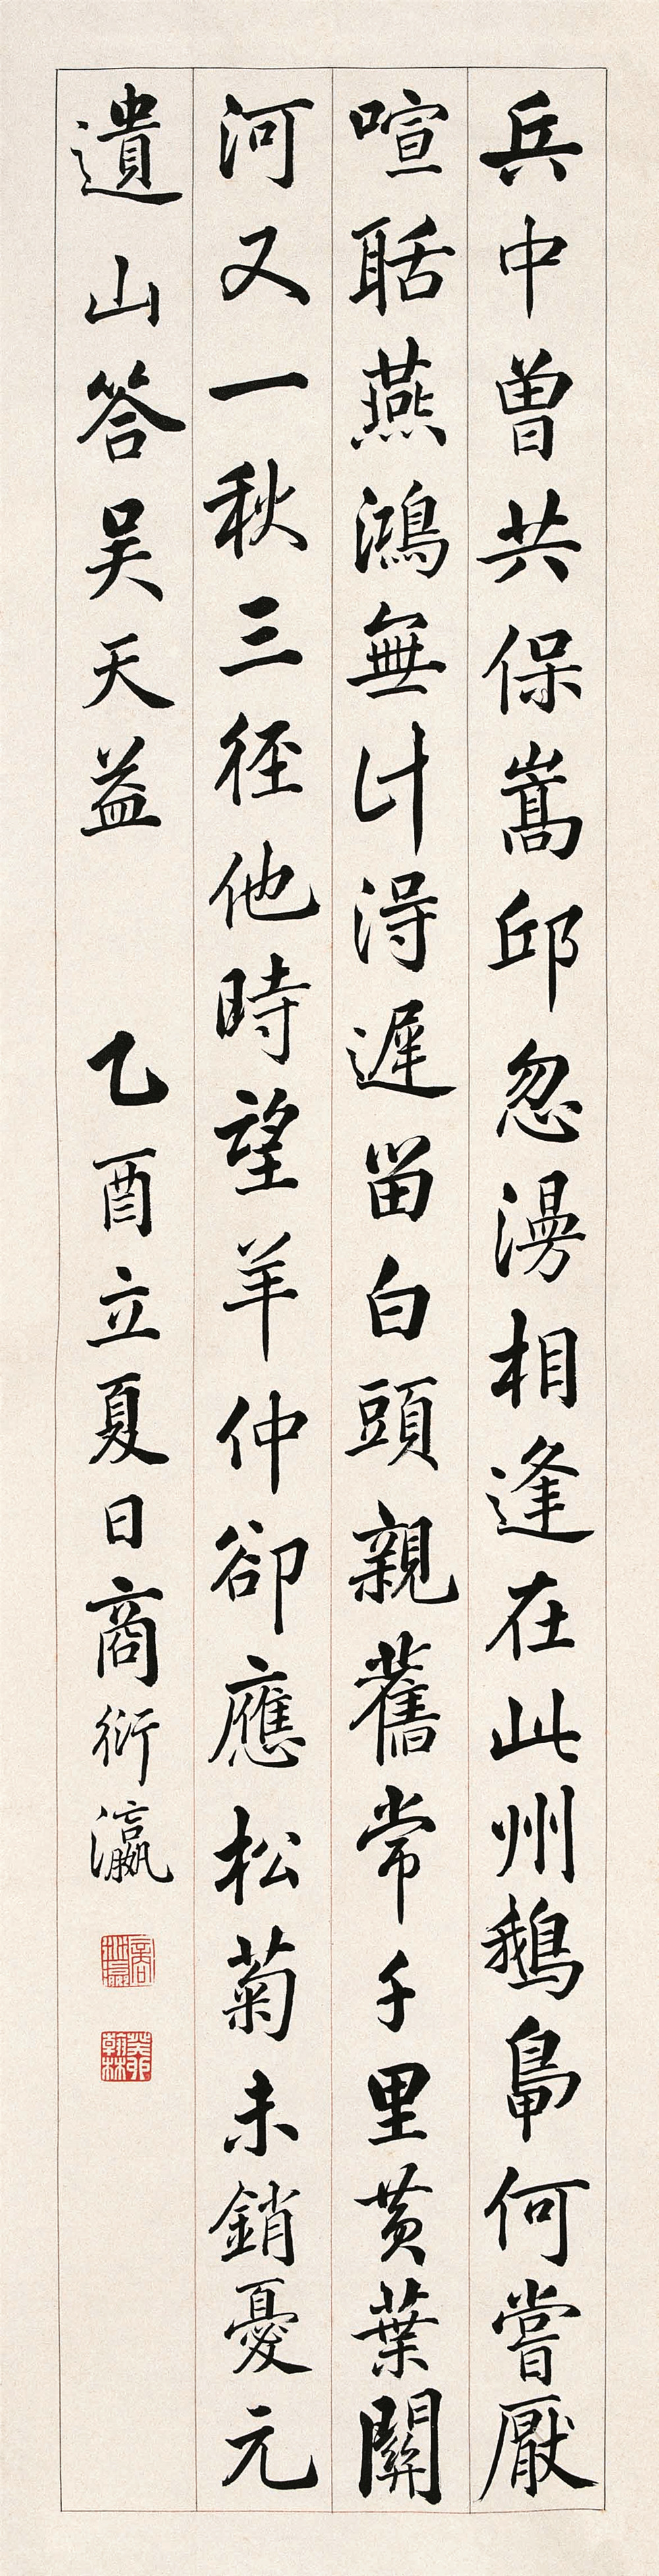 兵中曾共保嵩邱忽漫相逢在此州鵝鳧何嘗厭
喧聒燕鴻無計得遲留白頭親舊常千里黃葉關
河又一秋三徑他時望羊仲卻應松菊未銷憂元
遺山答吴天益 乙酉立夏日商衍瀛
商衍瀛
癸卯翰林